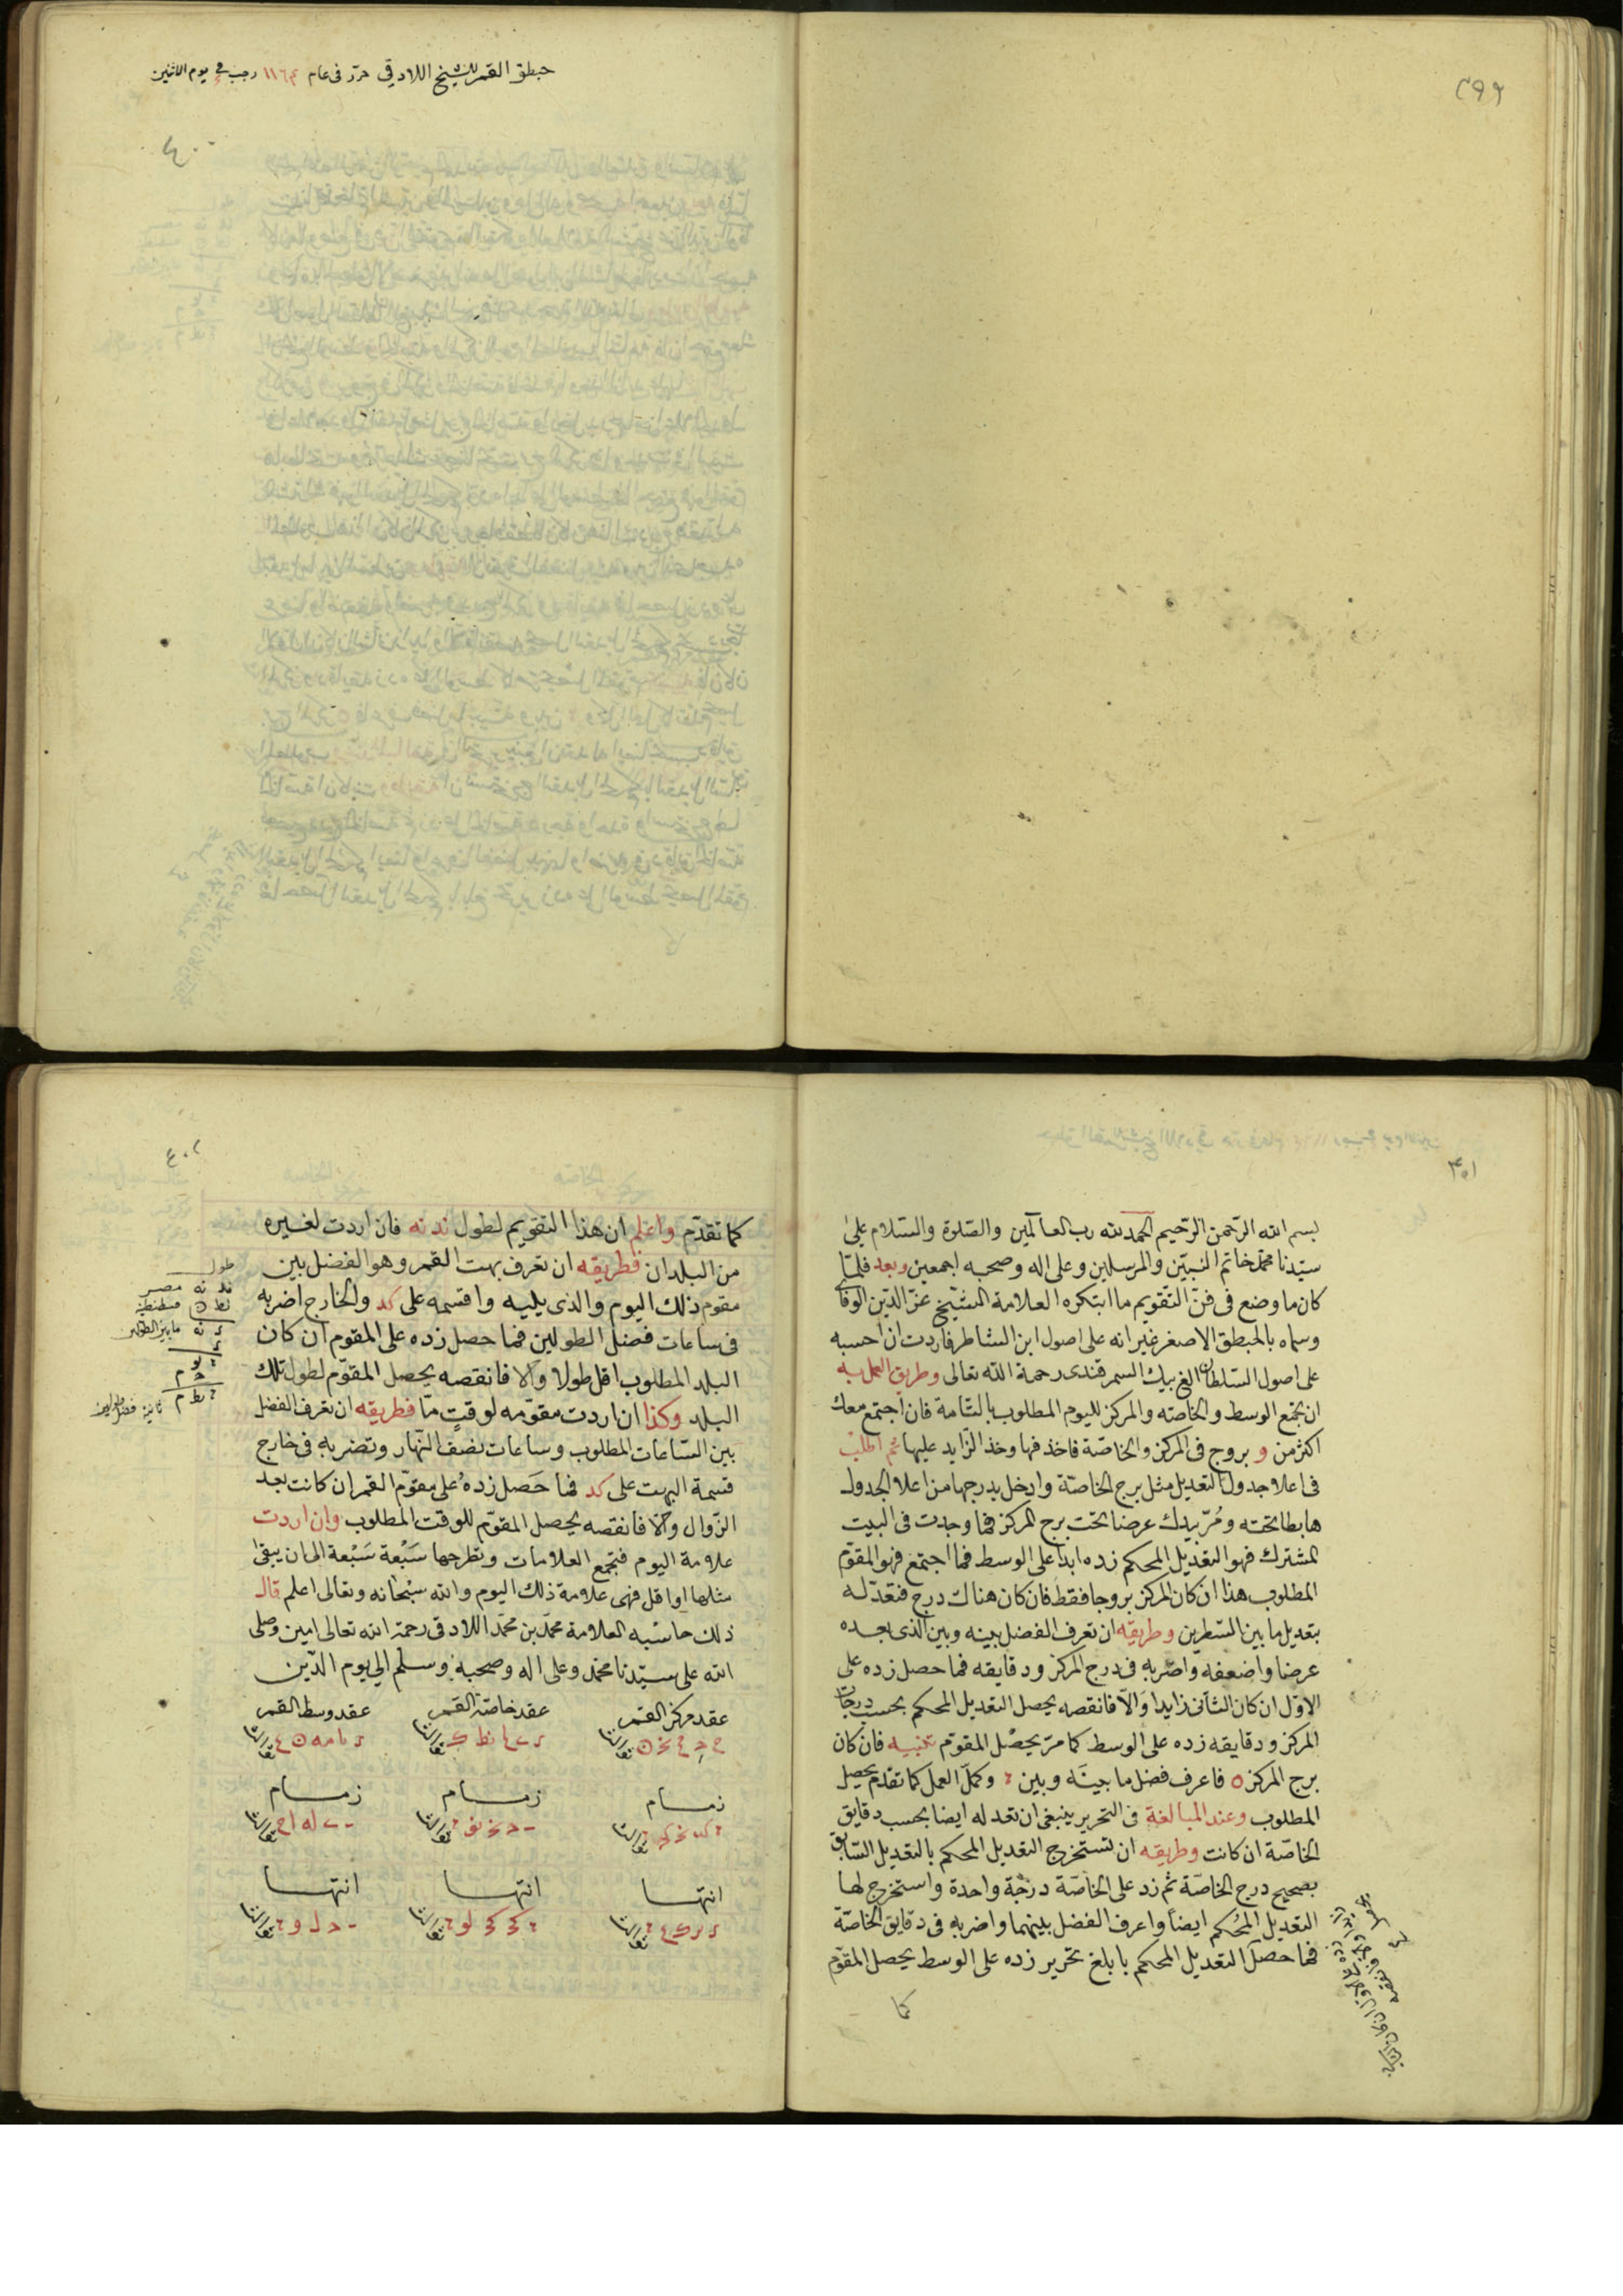 ٣٩٩
حبطق القمر للشيخ اللادقي حرّر فى عام ١١٦٤ رجب فى يوم الاثنين
٤٠٠
٤٠١
بسم الله الرّحمن الرّحيم الحمد لله رب العالمين والصّلوة والسّلام على
سيّدنا محمّد خاتم النبيّين والمرسلين وعلى اله وصحبه اجمعين وبعد فلمّا
كان ما وضع فى فنّ التقويم ما ابتكره العلامة الشيخ عزّ الدّين الوفائى
وسماه بالحبطق الاصغر غير انه على اصول ابن الشاطر فاردت ان احسبه
على اصول السّلطان الغ بيك السمرقندى رحمة الله تعالى وطريق العمل به
ان تجمع الوسط والخاصّه والمركز لليوم المطلوب بالتّامة فان اجتمع معك
اكثر من و بروج فى المركز والخاصّة فاخذفها وخذ الزّايد عليها ثم اطلب
فى اعلا جدول التعديل مثل برج الخاصّة وادخل بدرجها من اعلا الجدول
هابطا تحته ومُرّ بيدك عرضا تحت برج المركز فما وجدت فى البيت
المشترك فهو التعديل المحكم زده ابداً على الوسط فما اجتمع فهو المقوّم
المطلوب هذا ان كان المركز بروجا فقط فان كان هناك درج فتعدّله
بتعديل ما بين السّطرين وطريقه ان تعرف الفضل بينه وبين الذى بعده
عرضا واضعفه واضربه فى درج المركز ودقايقه فما حصل زده على
الاوّل ان كان الثّانى زايدا والاّ فانقصه يحصل التعديل المحكم بحسب درجات
المركز ودقايقه زده على الوسط كما مرّ يحصل المقوّم تنبيه فان كان
برج المركز ٥ فاعرف فضل ما بينَه وبين ٠ وكمّل العمل كما تقدّم يحصل
المطلوب وعند المبالغة فى التحرير ينبغى ان تعدله ايضا بحسب دقايق
الخاصّة ان كانت وطريقه ان تستخرج التعديل المحكم بالتعديل السّابق
بصحيح درج الخاصّة ثم زد على الخاصّة درجة واحدة واستخرج لها
التعديل المحكم ايضاً واعرف الفضل بينهما واضربه فى دقايق الخاصّة
فما حصل التعديل المحكم بابلغ تحرير زده على الوسط يحصل المقوّم
كما
٤٠٢
كما تقدّم واعلم ان هذا التقويم لطول ند نه فان اردت لغيره
من البلدان فطريقه ان تعرف بهت القمر وهو الفضل بين
مقوم ذلك اليوم والذى يليه واقسمه على كد والخارج اضربه
فى ساعات فضل الطولين فما حصل زده على المقوم ان كان
البلد المطلوب اقل طولا والا فانقصه يحصل المقوّم لطول تلك
البلد وكذا ان اردت مقوّمه لوقتٍ مّا فطريقه ان تعرف الفضل
بين السّاعات المطلوب وساعات نصف النّهار وتضربه فى خارج
قسمة البهت على كد فما حَصَل زدهُ على مقوّم القمر ان كانت بعد
الزّوال والّا فانقصه يحصل المقوّم للوقت المطلوب وان اردت
علامة اليوم فتجمع العلامات وتطرحها سَبْعة سَبْعة الى ان يبقى
مثلها او اقل فهى علامة ذلك اليوم والله سبْحانه وتعالى اعلم قال
ذلك حاسبه العلامة محمّد بن محمّد اللادقى رحمة الله تعالى امين وصلى
الله على سيّدنا محمّد وعلى اله وصحبه وسلم الى يوم الدّين
طول
ند نه مصر
نط ٥ قسطنطنية
ما بين الطولين
عقد مركز القمر
عقد خاصّة القمر
عقد وسط القمر
زمام
زمام
زمام
انتها
انتها
انتها